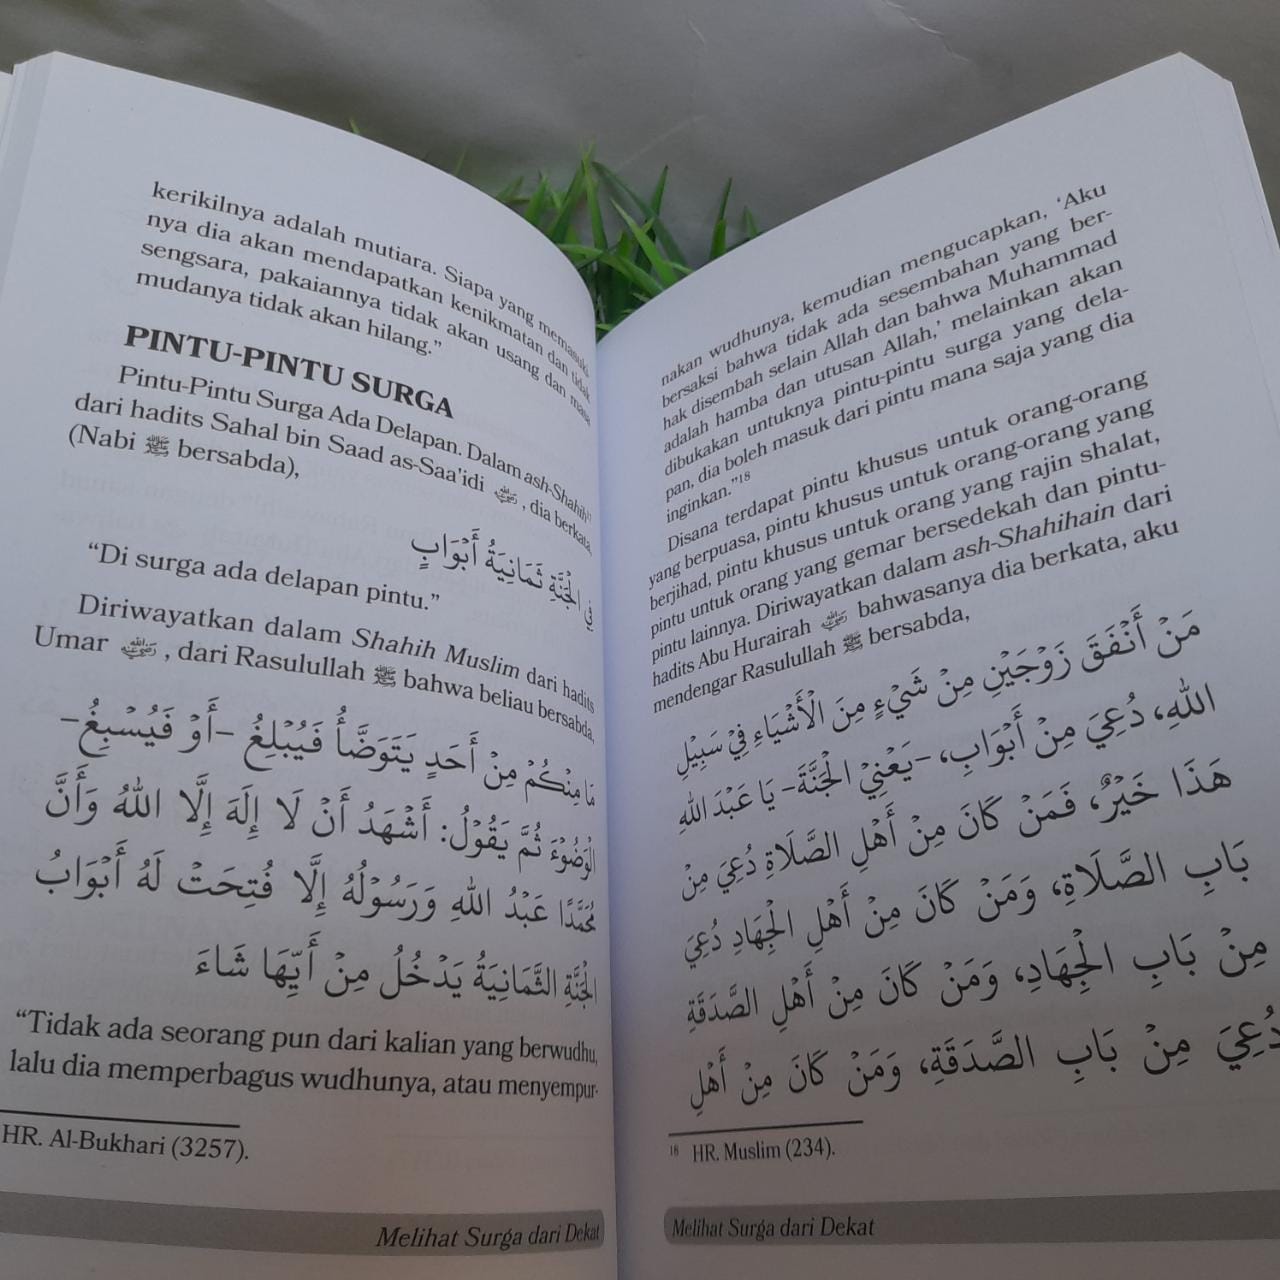 kerikilnya adalah mutiara. Siapa yang memasuki
nya dia akan mendapatkan kenikmatan dan tidak
sengsara, pakaiannya tidak akan usang dan masa
mudanya tidak akan hilang.”
PINTU-PINTU SURGA
Pintu-Pintu Surga Ada Delapan. Dalam ash-Shahih
dari hadits Sahal bin Saad as-Saa'idi ﵁, dia berkata,
(Nabi ﷺ bersabda),
فِي الْجَنَّةِ ثَمَانِيَةُ أَبْوَابٍ
“Di surga ada delapan pintu.”
Diriwayatkan dalam Shahih Muslim dari hadits
Umar ﵁, dari Rasulullah ﷺ bahwa beliau bersabda,
مَا مِنْكُمْ مِنْ أَحَدٍ يَتَوَضَّأُ فَيُبْلِغُ –أَوْ فَيُسْبِغُ–
الْوَضُوْءَ ثُمَّ يَقُوْلُ: أَشْهَدُ أَنْ لَا إِلَهَ إِلَّا اللهُ وَأَنَّ
مُحَمَّدًا عَبْدُ اللهِ وَرَسُوْلُهُ إِلَّا فُتِحَتْ لَهُ أَبْوَابُ
الْجَنَّةِ الثَّمَانِيَةُ يَدْخُلُ مِنْ أَيِّهَا شَاءَ
“Tidak ada seorang pun dari kalian yang berwudhu,
lalu dia memperbagus wudhunya, atau menyempur-
HR. Al-Bukhari (3257).
Melihat Surga dari Dekat
nakan wudhunya, kemudian mengucapkan, ‘Aku
bersaksi bahwa tidak ada sesembahan yang ber-
hak disembah selain Allah dan bahwa Muhammad
adalah hamba dan utusan Allah,’ melainkan akan
dibukakan untuknya pintu-pintu surga yang dela-
pan, dia boleh masuk dari pintu mana saja yang dia
inginkan.”18
Disana terdapat pintu khusus untuk orang-orang
yang berpuasa, pintu khusus untuk orang-orang yang
berjihad, pintu khusus untuk orang yang rajin shalat,
pintu untuk orang yang gemar bersedekah dan pintu-
pintu lainnya. Diriwayatkan dalam ash-Shahihain dari
hadits Abu Hurairah ﵁ bahwasanya dia berkata, aku
mendengar Rasulullah ﷺ bersabda,
مَنْ أَنْفَقَ زَوْجَيْنِ مِنْ شَيْءٍ مِنَ الْأَشْيَاءِ فِيْ سَبِيْلِ
اللهِ، دُعِيَ مِنْ أَبْوَابِ، –يَعْنِيْ الْجَنَّةَ– يَا عَبْدَ اللهِ
هَذَا خَيْرٌ، فَمَنْ كَانَ مِنْ أَهْلِ الصَّلَاةِ دُعِيَ مِنْ
بَابِ الصَّلَاةِ، وَمَنْ كَانَ مِنْ أَهْلِ الْجِهَادِ دُعِيَ
مِنْ بَابِ الْجِهَادِ، وَمَنْ كَانَ مِنْ أَهْلِ الصَّدَقَةِ
دُعِيَ مِنْ بَابِ الصَّدَقَةِ، وَمَنْ كَانَ مِنْ أَهْلِ
18 HR. Muslim (234).
Melihat Surga dari Dekat